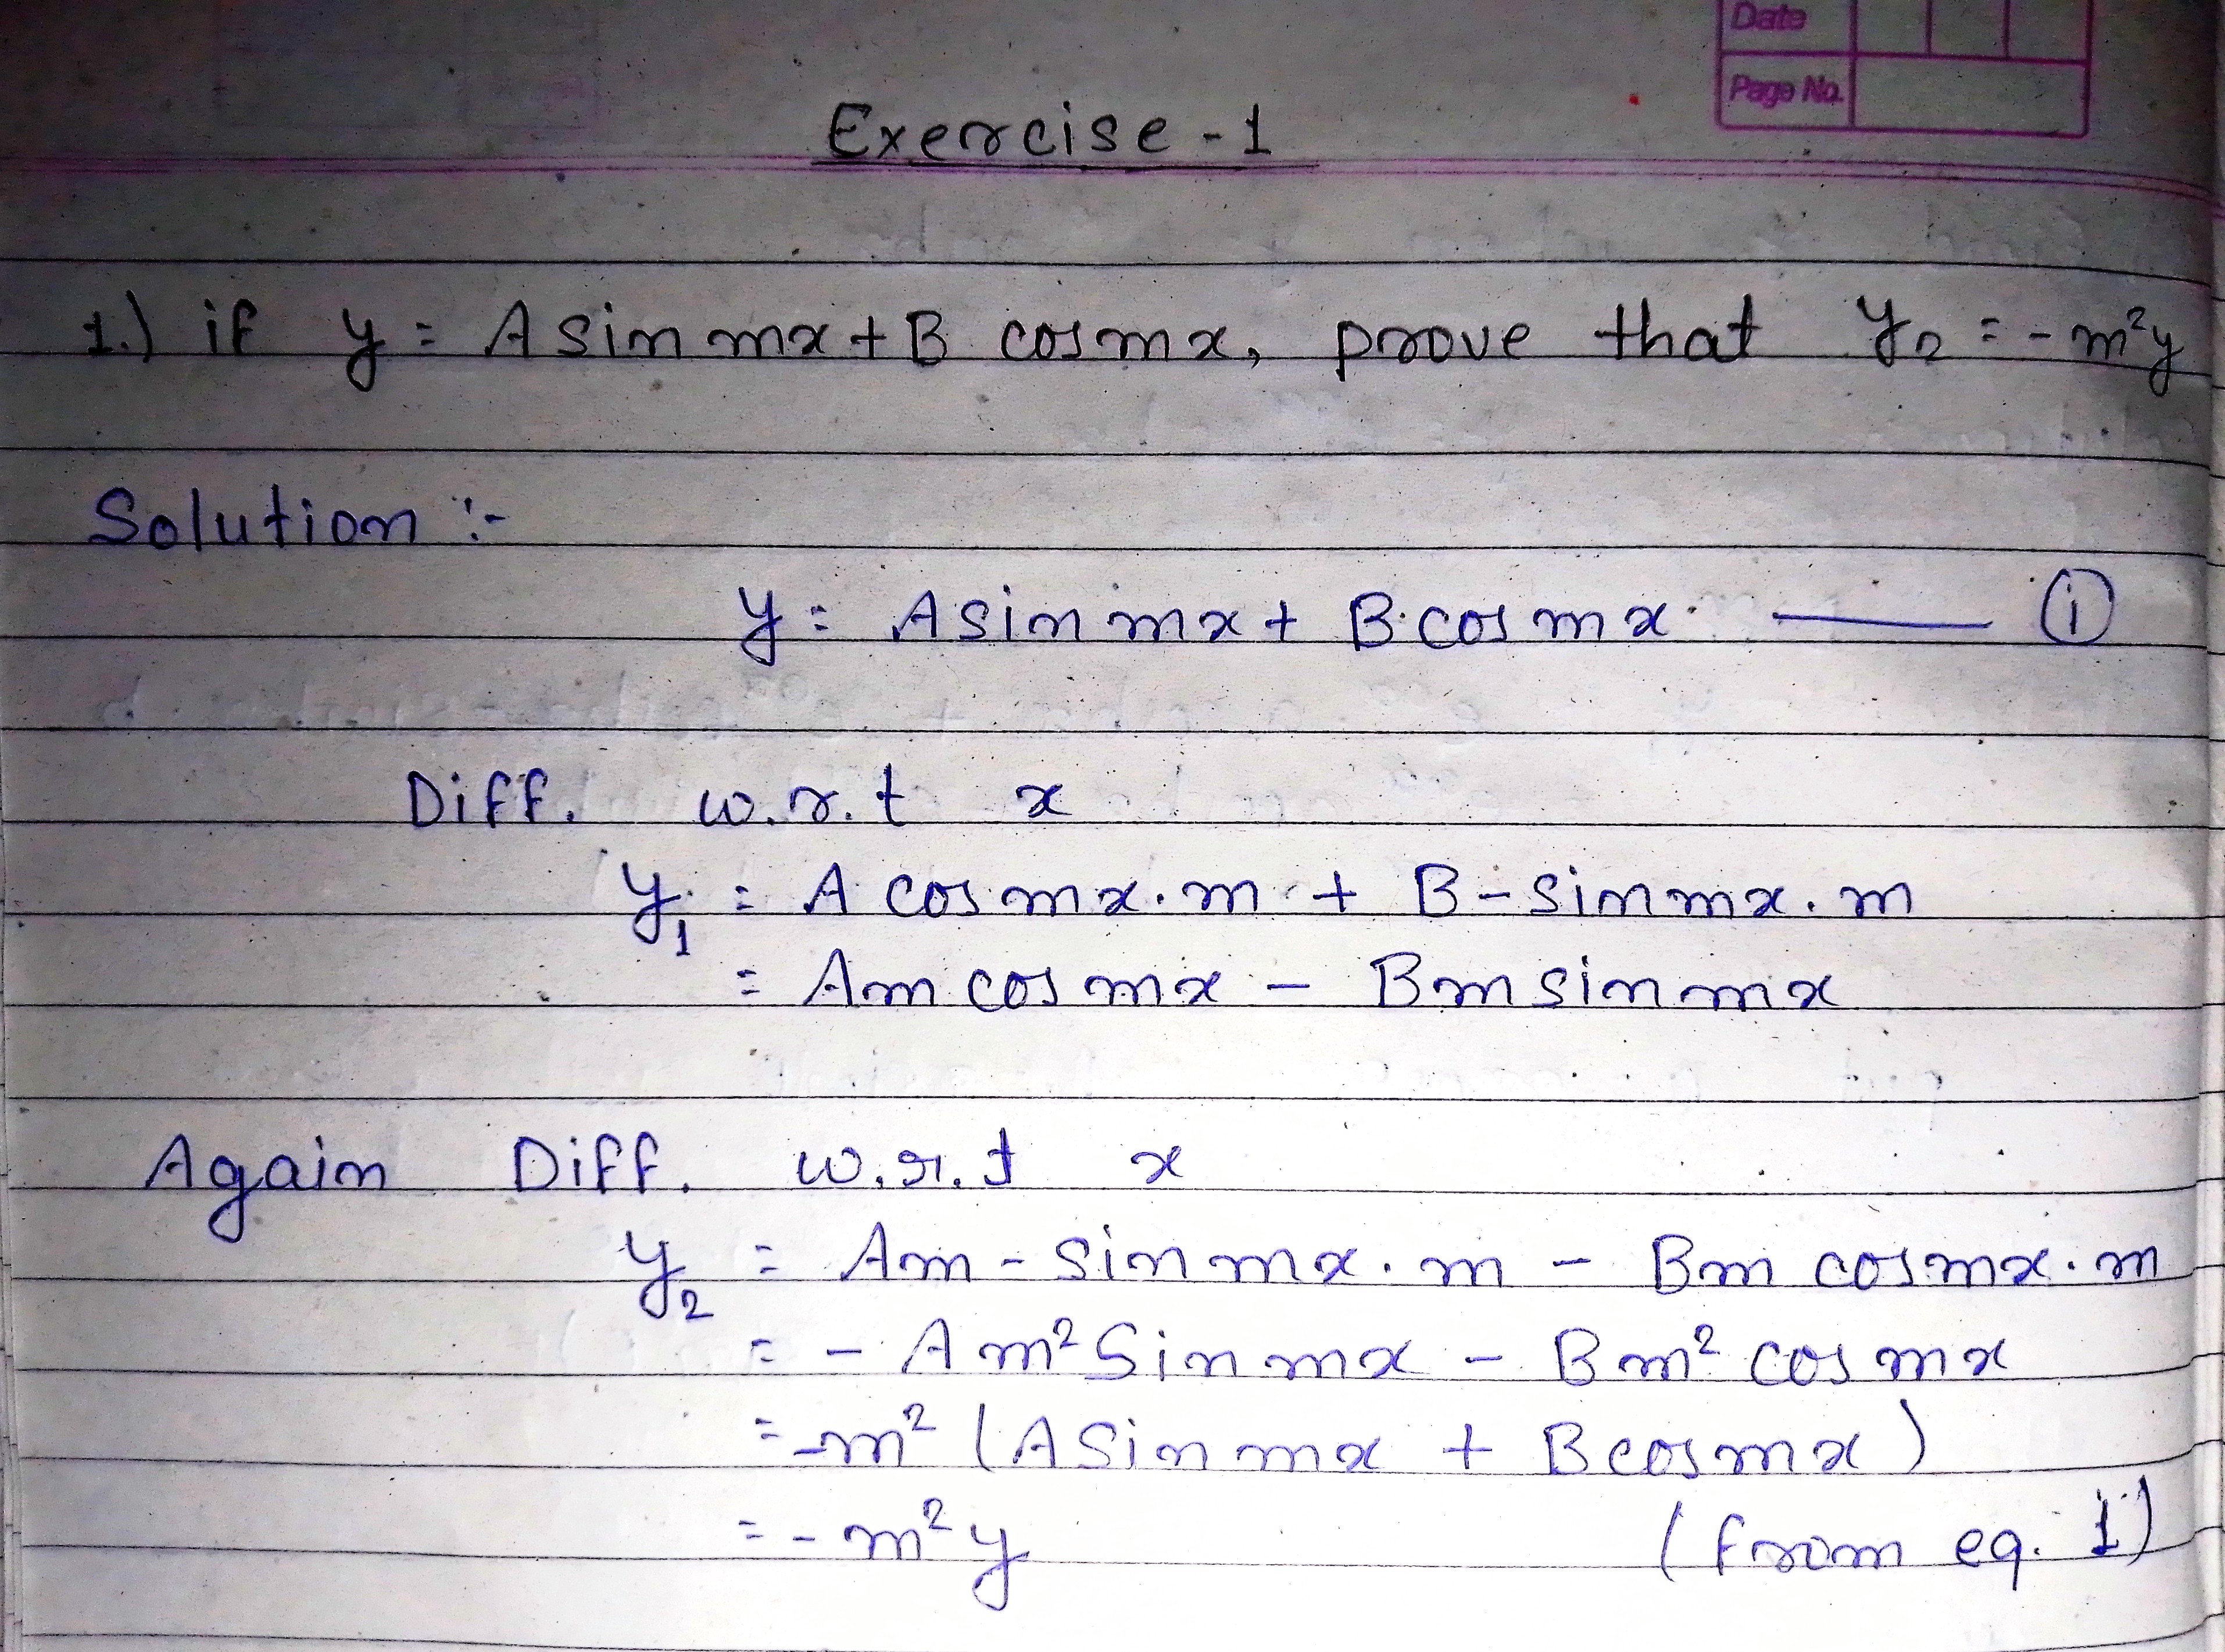 Date
Page No.
Exercise - 1
1.) if y = A sin mx + B cos mx, prove that y₂ = - m²y
Solution :-
y = A sin mx + B cos mx —— (i)
Diff. w.r.t x
y₁ = A cos mx . m + B - sin mx . m
= Am cos mx - Bm sin mx
Again Diff. w.r.t x
y₂ = Am - sin mx . m - Bm cos mx . m
= - Am² Sin mx - Bm² cos mx
= -m² (A Sin mx + B cos mx)
= - m²y (from eq. 1)